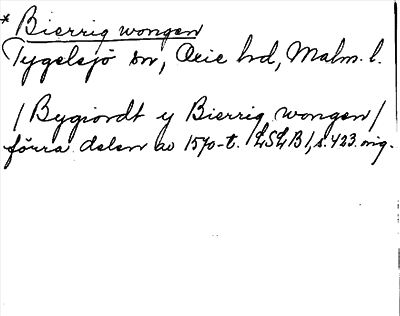 * Bierrig wongen
Tygelsjö sn, Oxie hd, Malm. l.
/Bygiordt y Bierrig wongen/
förra delen av 1570-t. LSLB1, s. 423. orig.